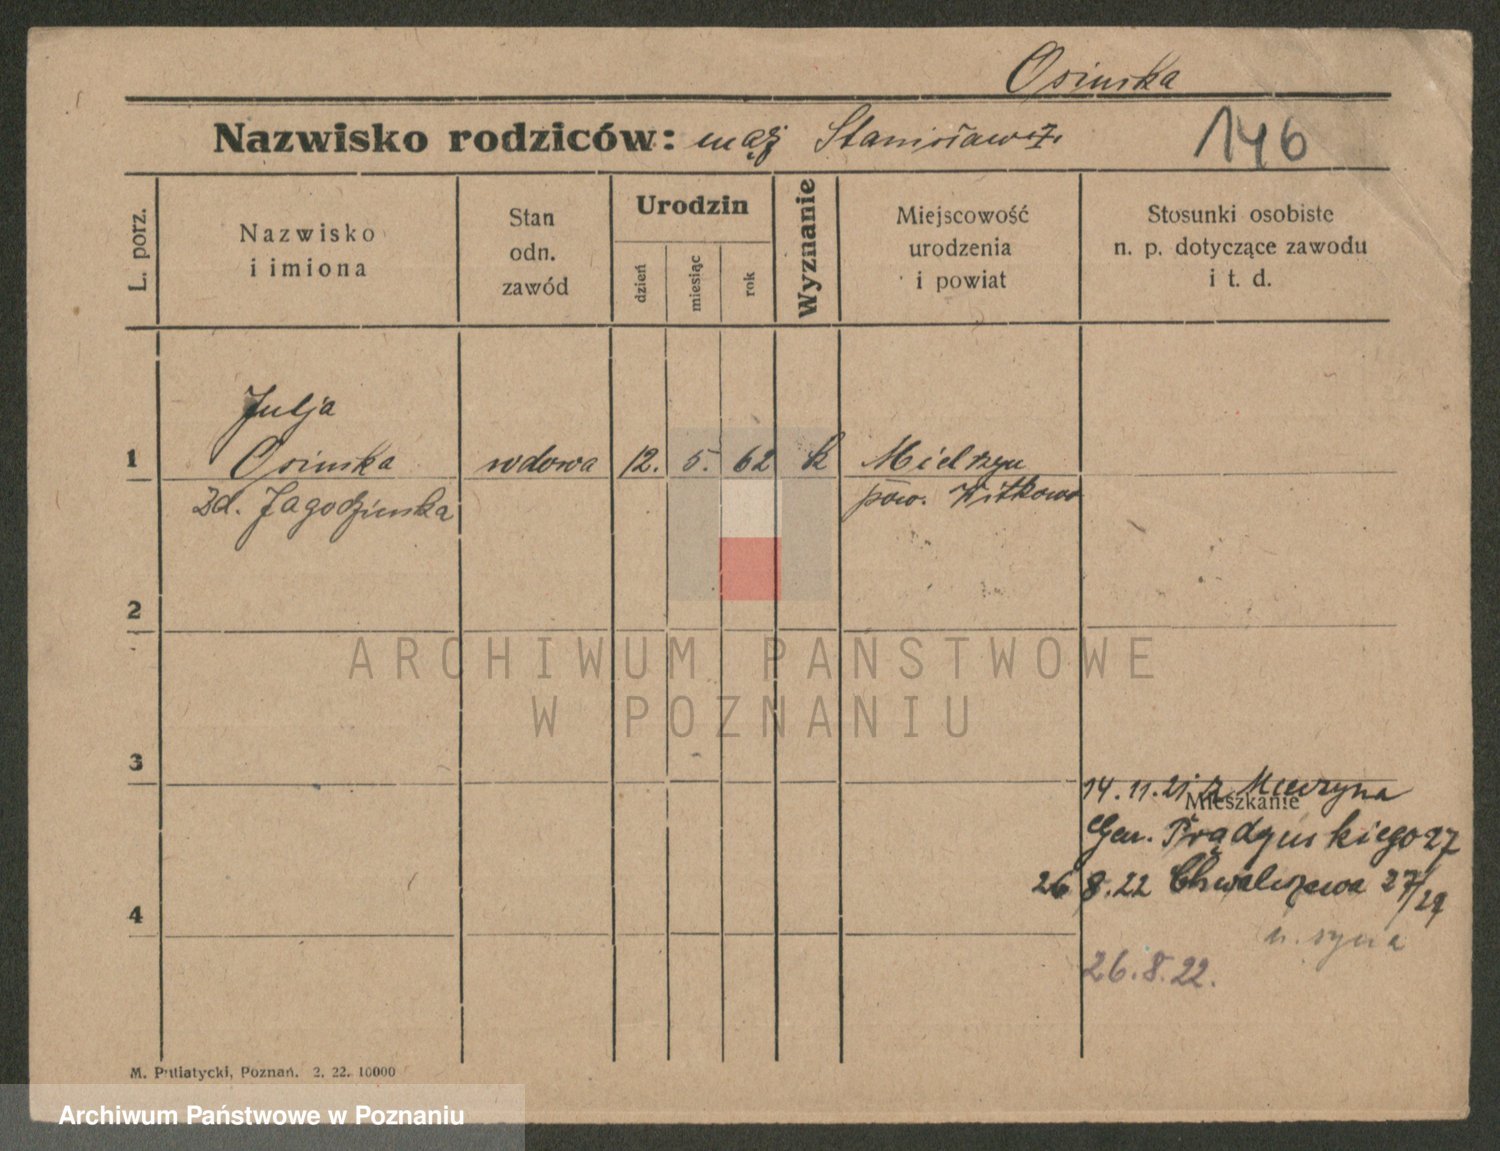 Osinska
Nazwisko rodziców: mąż Stanisław z.
146
L. porz.
Nazwisko
i imiona
Stan
odn.
zawód
Urodzin
dzień
miesiąc
rok
Wyznanie
Miejscowość
urodzenia
i powiat
Stosunki osobiste
n. p. dotyczące zawodu
i t. d.
Julja
1 Osinska wdowa 12. 5. 62 k Mielżyn
zd. Jagodzinska pow. Witkowo
2
ARCHIWUM PAŃSTWOWE
W POZNANIU
3
14.11.21 z
Mieszkanie
Gen. Prądzynskiego 27
26 8.22 Chwaliszewa 27/29
4
u. syna
26.8.22.
M. Putiatycki, Poznań. 2. 22. 10000
Archiwum Państwowe w Poznaniu